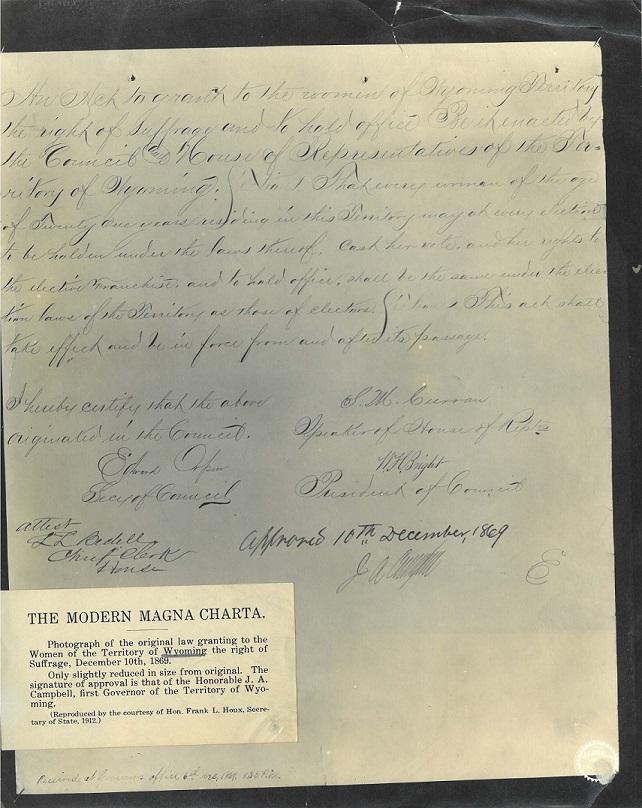 An Act to grant to the women of Wyoming Territory
the right of Suffrage and to hold office Be it enacted by
the Council & House of Representatives of the Ter-
ritory of Wyoming. That every woman of the age
of Twenty one years residing in this Territory may at every election
to be holden under the laws thereof, cast her vote, and her rights to
the elective franchise, and to hold office, shall be the same under the elec
tion laws of the Territory as those of electors. This act shall
take effect and be in force from and after its passage.
I hereby certify that the above
originated in the Council.
Edward
Secy of Council
S. M. Curran
Speaker of House of Repts
W H Bright
President of Council
attest
L L Bedell
Chief Clerk
House
Approved 10th December, 1869
J A Campbell
E
THE MODERN MAGNA CHARTA.
Photograph of the original law granting to the
Women of the Territory of Wyoming the right of
Suffrage, December 10th, 1869.
Only slightly reduced in size from original. The
signature of approval is that of the Honorable J. A.
Campbell, first Governor of the Territory of Wyo-
ming.
(Reproduced by the courtesy of Hon. Frank L. Houx, Secre-
tary of State, 1912.)
Received at Governors office 6th